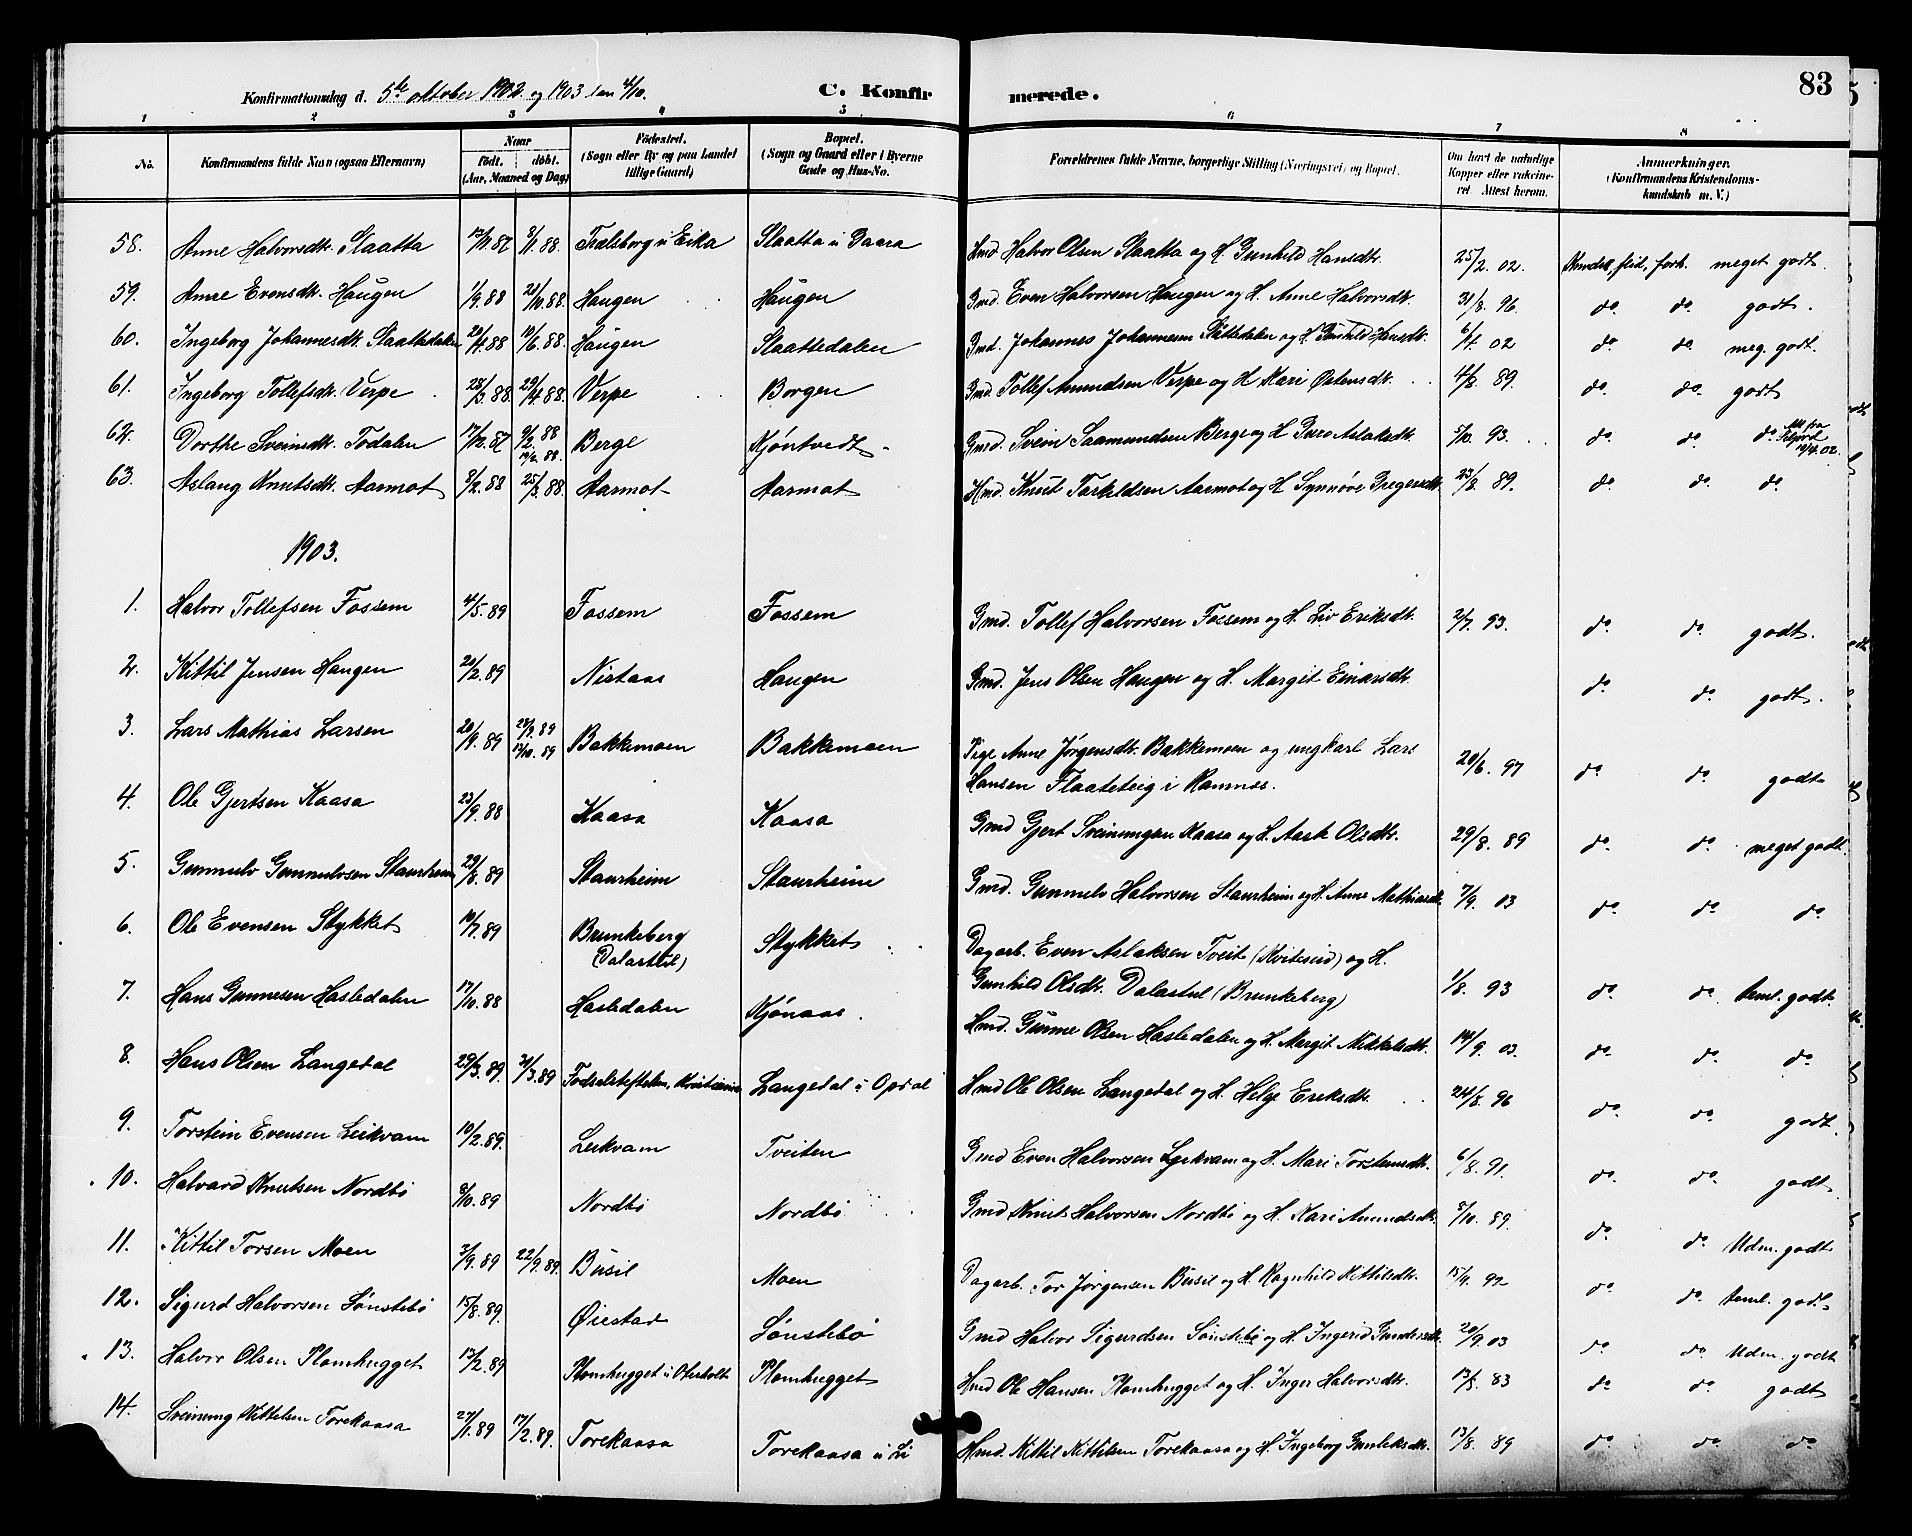 83
Konfirmationsdag d. 5te oktober 1902 og 1903 den 4/10. C. Konfirmerede.
1 2 3 4 5 6 7 8
No. Konfirmandens fulde Navn (ogsaa Efternavn) Naar født. døbt. (Aar, Maaned og Dag) Fødested. (Sogn eller By og paa Landet tillige Gaard) Bopæl. (Sogn og Gaard eller i Byerne Gade og Hus-No. Forældrenes fulde Navne, borgerlige Stilling (Næringsvei) og Bopæl. Om havt de naturlige Kopper eller vakcineret. Attest herom. Anmærkninger. (Konfirmandens Kristendomskundskab m. V.)
58. Anne Halvorsdtr. Slaatta 13/11.87 8/1.88. Trælsborg i Eika Slaatta i Gaara Hmd Halvor Olsen Slaatta og H. Gunhild Hansdtr. 25/2.02. Kundsk, flid, forh. meget godt.
59. Anne Evensdtr. Haugen 1/9.88 21/10.88. Haugen Haugen Gmd. Even Halvorsen Haugen og H. Anne Halvorsdtr. 31/8.96. do. do. godt.
60. Ingeborg Johannesdtr. Slaattedalen 20/4.88 10/6.88. Haugen Slaattedalen Gmd. Johannes Johannesen Slåttedalen og H. Gunhild Hansdtr. 6/4.02 do. do. meg. godt.
61. Ingeborg Tollefsdtr. Verpe 25/3.88. 29/4.88. Verpe Borgen Gmd. Tollef Amundsen Verpe og H Kari Østensdtr. 4/8.89. do. do. godt
62. Dorthe Sveinsdtr. Todalen 17/12.87 9/2.88 19/2.88. Berge Kjøntvedt Gmd. Svein Saamundsen Berge og H Guro Aslaksdtr. 5/10.93. do. do. do. Att fra Seljord 19/4.02.
63. Aslaug Knutsdtr. Aarmot 9/2.88 25/3.88. Aarmot Aarmot Hmd. Knut Tarkildsen Aarmot og H Synnøve Gregersdtr. 23/8.89. do. do. do.
1903.
1. Halvor Tollefsen Fossem 4/5.89 Fossem Fossem Gmd. Tollef Halvorsen Fossem og H. Liv Eriksdtr. 2/7.93. do. do. godt.
2. Kittil Jensen Haugen 20/2.89 Nistaas Haugen Gmd. Jens Olsen Haugen og H. Margit Einarsdtr. do. do. godt.
3. Lars Mathias Larsen 20/9.89 28/9.89 13/10.89 Bakkemoen Bakkemoen Pige Anne Jørgensdtr. Bakkemoen og ungkarl Lars Hansen Flaateteig i Ramnæs. 20/6.97 do. do. godt
4. Ole Gjertsen Kaasa 23/9.88 Kaasa Kaasa Gmd Gjert Sveinungsen Kaasa og H. Aase Olsdtr. 29/8.89 do. do. meget godt.
5. Gunnulv Gunnulvsen Staurheim 29/8.89 Staurheim Staurheim Gmd. Gunnulv Halvorsen Staurheim og H. Anne Mathiasdtr. 7/9.03 do. do. do.
6. Ole Evensen Stykket 10/7.89 Brunkeberg (Dalastul) Stykket Dagarb. Even Aslaksen Tveit (Kviteseid) og H. Gunhild Olsdtr. Dalastul (Brunkeberg) 1/8.93 do. do. teml. godt.
7. Hans Gunnesen Hasledalen 17/10.88 Hasledalen Kjønaas. Hmd. Gunne Olsen Hasledalen og H. Margit Mikkelsdtr. 14/9.03. do. do. do.
8. Hans Olsen Langedal 29/3.89. 31/3.89 Fødselsstiftelsen, Kristiania Langedal i Opdal Hmd Ole Olsen Langedal og H. Helge Eriksdtr. 24/8.96 do. do. godt.
9. Torstein Evensen Leikvam 10/2.89. Leikvam Tveiten Gmd Even Halvorsen Leikvam og H. Mari Torsteinsdtr. 6/8.91. do. do. godt.
10. Halvard Knutsen Nordbø 9/10.89 Nordbø Nordbø Gmd Knut Halvorsen Nordbø og H. Kari Amundsdtr. 8/10.89. do. do. Udm. godt
11. Kittil Torsen Moen 3/9.89 22/9.89. Busil Moen Dagarb. Tor Jørgensen Busil og H. Ragnhild Kittilsdtr. 15/9.92 do. do. teml. godt
12. Sigurd Halvorsen Sønstebø 15/8.89. Øiestad Sønstebø Gmd Halvor Sigurdsen Sønstebø og H Ingerid Gundersdtr. 20/9.03 do. do. Udm. godt
13. Halvor Olsen Plomhugget 13/2.89 Plomhugget i Oterholt Plomhugget Hmd Ole Hansen Plomhugget og H. Inger Halvorsdtr. 13/8.83 do. do. godt
14. Sveinung Kittelsen Torekaasa 27/1.89 17/2.89. Torekaasa Torekaasa i Li Hmd. Kittil Kittilsen Torekaasa og H Ingeborg Gunleksdtr. 13/8.89 do. do. do.